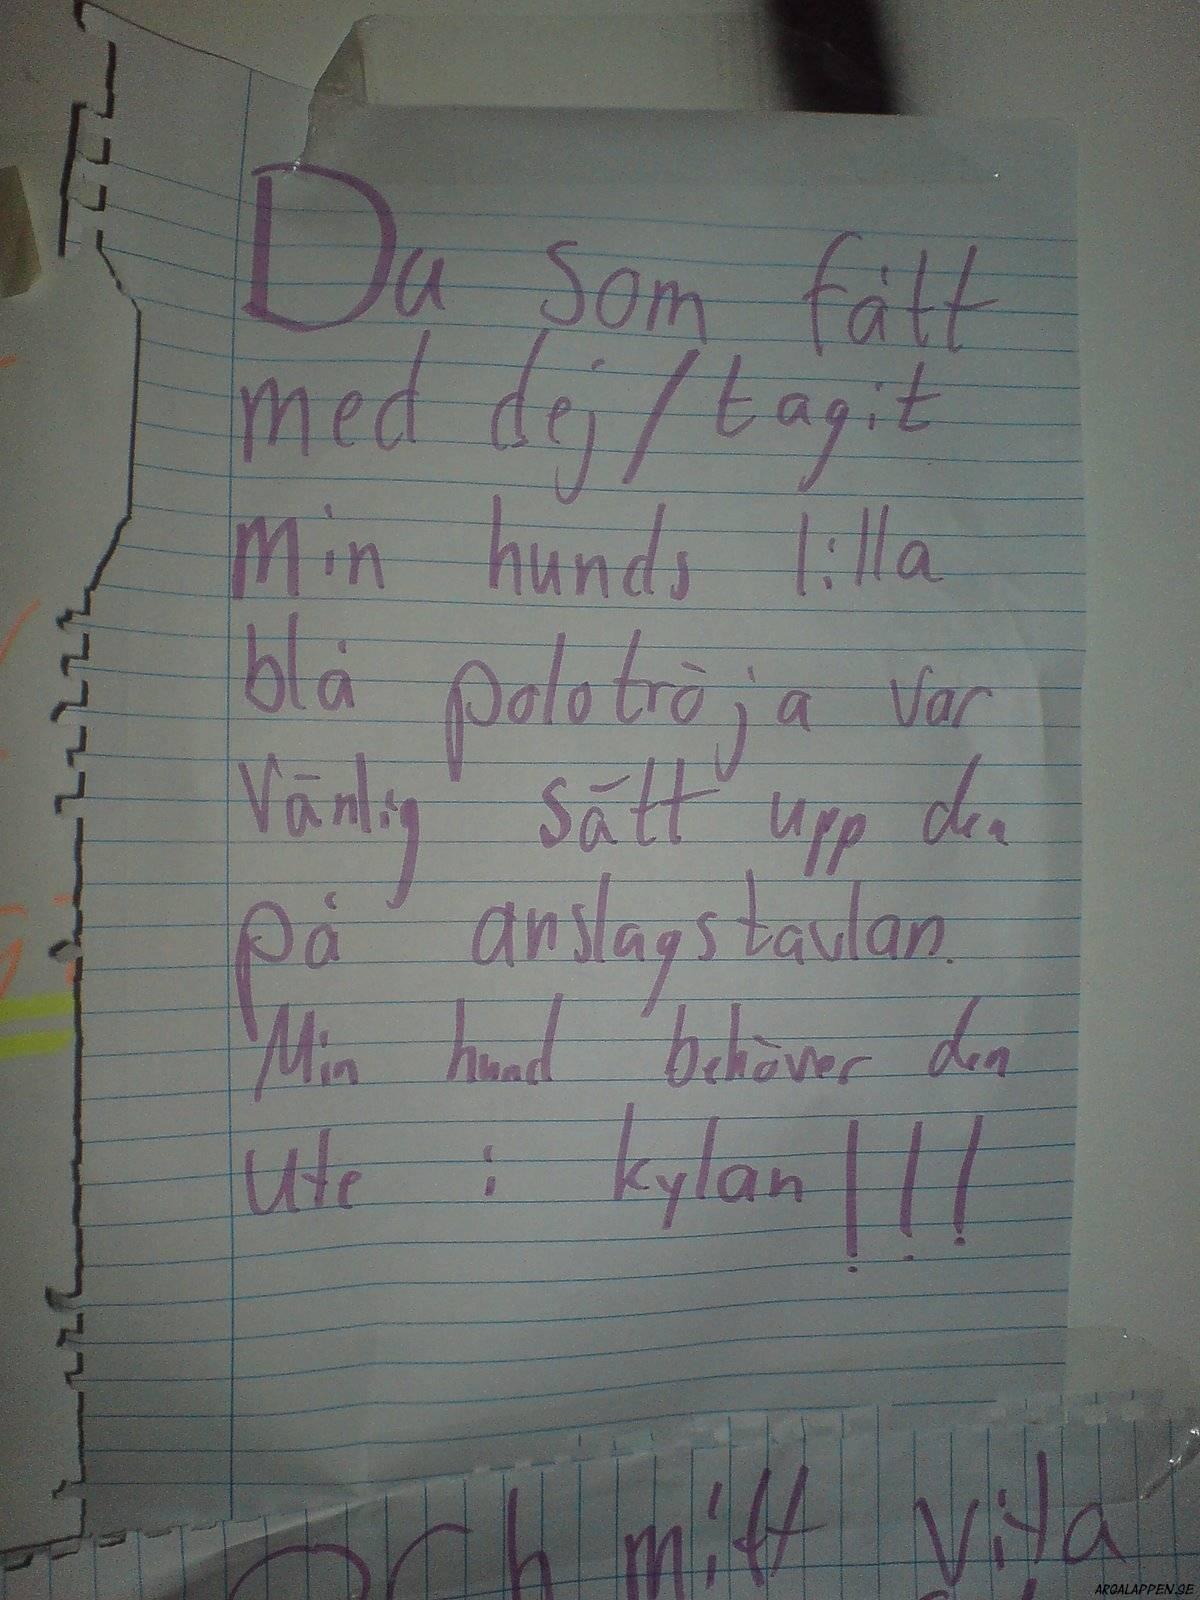 Du som fått
med dej/tagit
min hunds lilla
blå polotröja var
vänlig sätt upp den
på anslagstavlan.
Min hund behöver den
ute i kylan!!!
Och mitt vita
ARGALAPPEN.SE